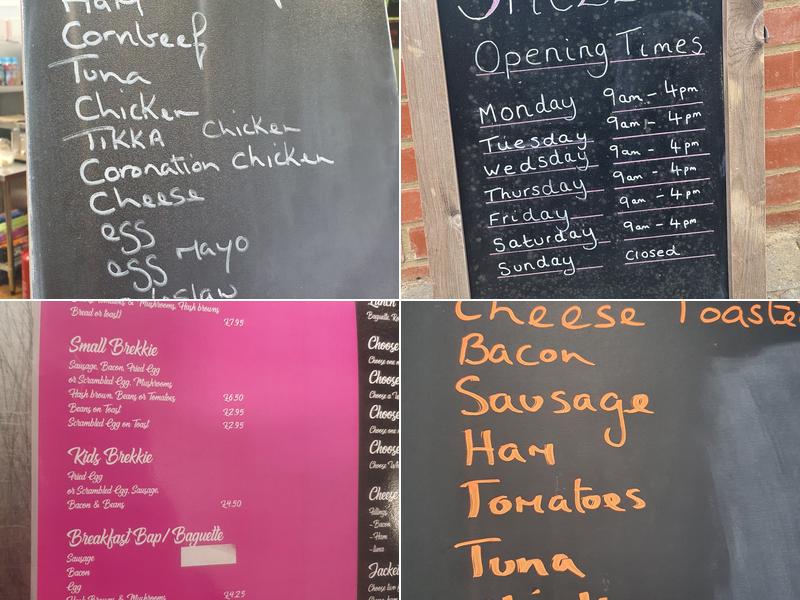 Ham
Cornbeef
Tuna
Chicken
TIKKA Chicken
Coronation Chicken
Cheese
egg
egg Mayo
Opening Times
Monday 9am - 4pm
Tuesday 9am - 4pm
Wedsday 9am - 4pm
Thursday 9am - 4pm
Friday 9am - 4pm
Saturday 9am - 4pm
Sunday Closed
Mushrooms, Hash browns
Bread or toast)
£7.95
Small Brekkie
Sausage, Bacon, Fried Egg
or Scrambled Egg, Mushrooms,
Hash brown, Beans or Tomatoes £6.50
Beans on Toast £2.95
Scrambled Egg on Toast £2.95
Kids Brekkie
Fried Egg
or Scrambled Egg, Sausage,
Bacon & Beans £4.50
Breakfast Bap / Baguette
Sausage
Bacon
Egg
Hash Browns & Mushrooms £4.25
Lunch
Baguette,
Choose
Choose one
Choose
Choose a
Choose
Choose one
Choose
Choose
Cheese
Fillings
- Bacon
- Ham
- Tuna
Jacket
Choose
Cheese Toaste
Bacon
Sausage
Ham
Tomatoes
Tuna